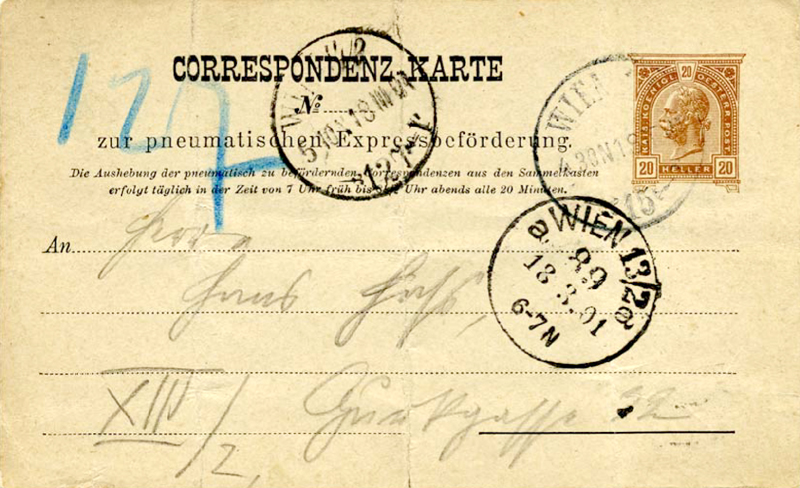 127
CORRESPONDENZ-KARTE
№
zur pneumatischen Expressbeförderung.
Die Aushebung der pneumatisch zu befördernden Correspondenzen aus den Sammelkasten
erfolgt täglich in der Zeit von 7 Uhr früh bis Uhr abends alle 20 Minuten.
KAIS. KOENIGL. 20 OESTERR. POST
20 HELLER 20
WIEN
WIEN 13/2
89
18 3.01
6-7N
An Herrn
Hans
XIII/2,